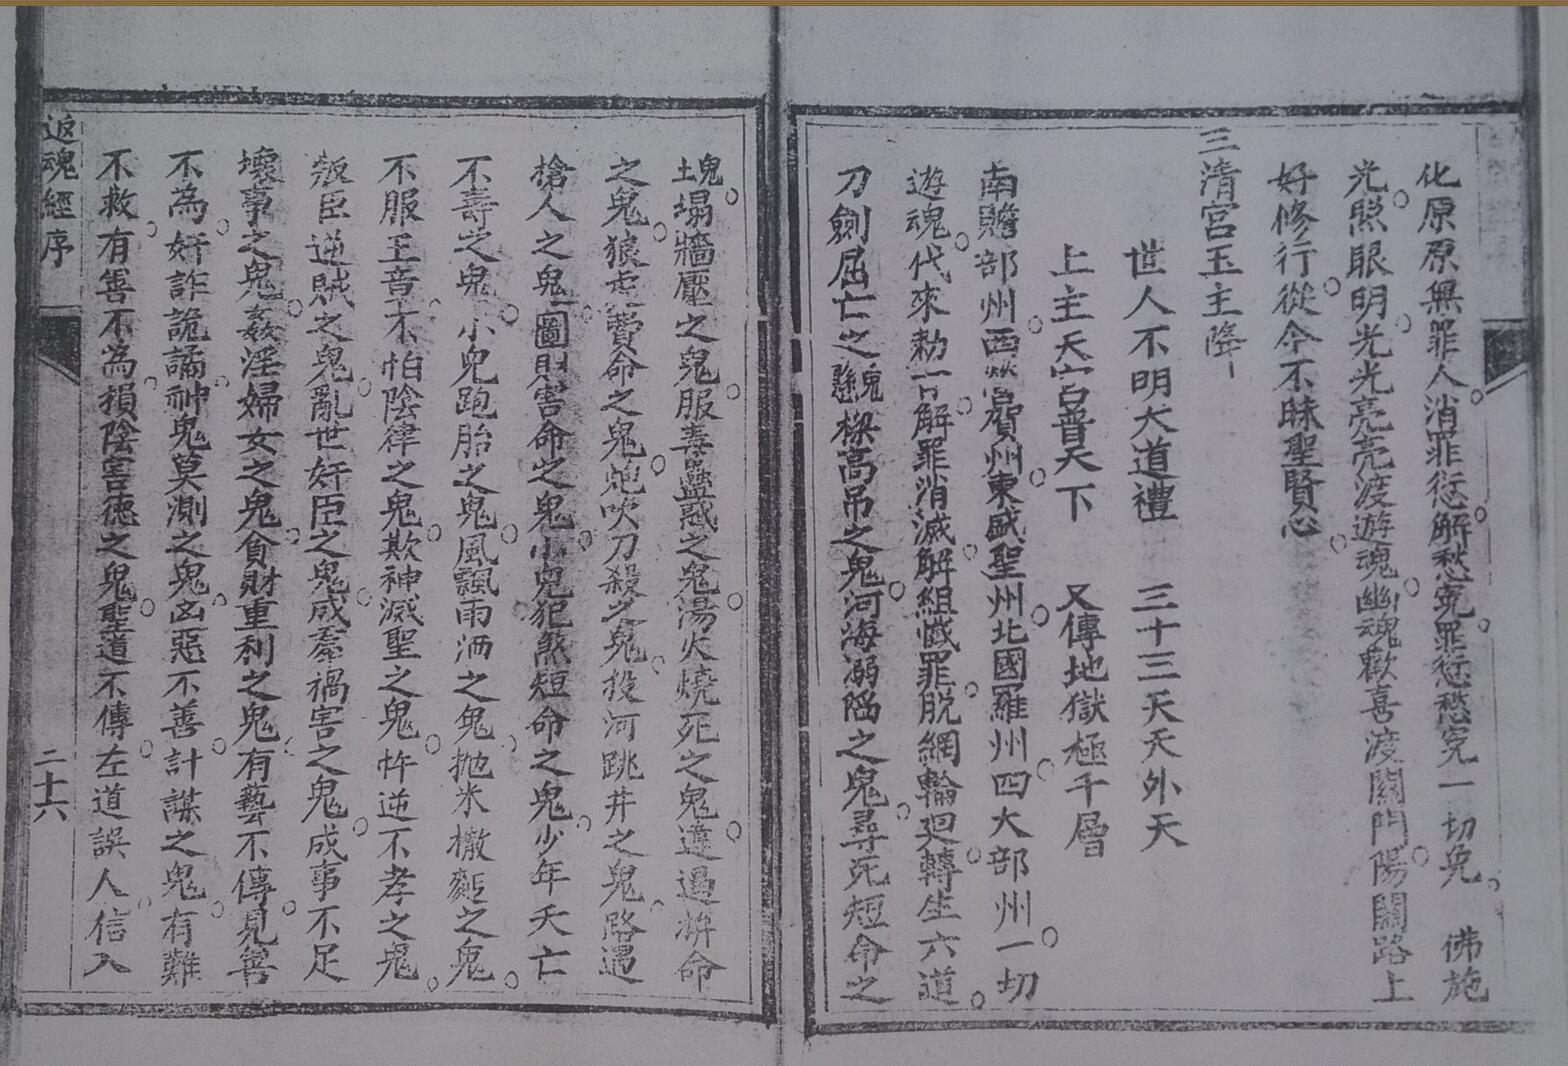 化原原無罪人消罪愆。解愁寃。罪愆愁寃一切免。 佛施
光。照眼明。光光亮亮渡遊魂。幽魂歡喜渡關門。陽關路上
好修行。從今不昧聖賢心。
三清宮玉主降
世人不明大道禮 三十三天天外天
上主天宮普天下 又傳地獄極千層
南贍部州。西牛賀州。東盛聖州。北國羅州。四大部州。一切
遊魂。代來勅令。解罪消滅。解組懺罪。脫網輪廻。轉生六道。
刀劍屈亡之魂。懸樑高吊之鬼。河海溺陷之鬼。尋死短命之
魂。土塌牆壓之鬼。服毒蠱惑之鬼。湯火燒死之鬼。遭過滸命
之鬼。狼吞喪命之鬼。炮吹刀殺之鬼。投河跳井之鬼。路過
搶人之鬼。圖財害命之鬼。小鬼犯煞短命之鬼。少年夭亡
不壽之鬼。小兒跑胎之鬼。風飄雨洒之鬼。拋米撒麪之鬼。
不服王章。不怕陰律之鬼。欺神滅聖之鬼。忤逆不孝之鬼。
叛臣逆賊之鬼。亂世奸臣之鬼。咸秦禍害之鬼。成事不足
壞事之鬼。姦淫婦女之鬼。貪財重利之鬼。有藝不傳。見善
不為。奸詐詭譎。神鬼莫測之鬼。凶惡不善。計謀之鬼。有難
不救。有善不為。損陰害德之鬼。聖道不傳。左道誤人。信入
返魂經序
二十六